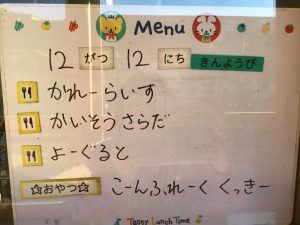 Menu
12 がつ 12 にち きんようび
かれーらいす
かいそうさらだ
よーぐると
☆おやつ☆ こーんふれーく くっきー
Tasty Lunch Time